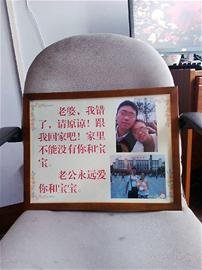 老婆，我错
了，请原谅！跟
我回家吧！家里
不能没有你和宝
宝。
老公永远爱
你和宝宝。